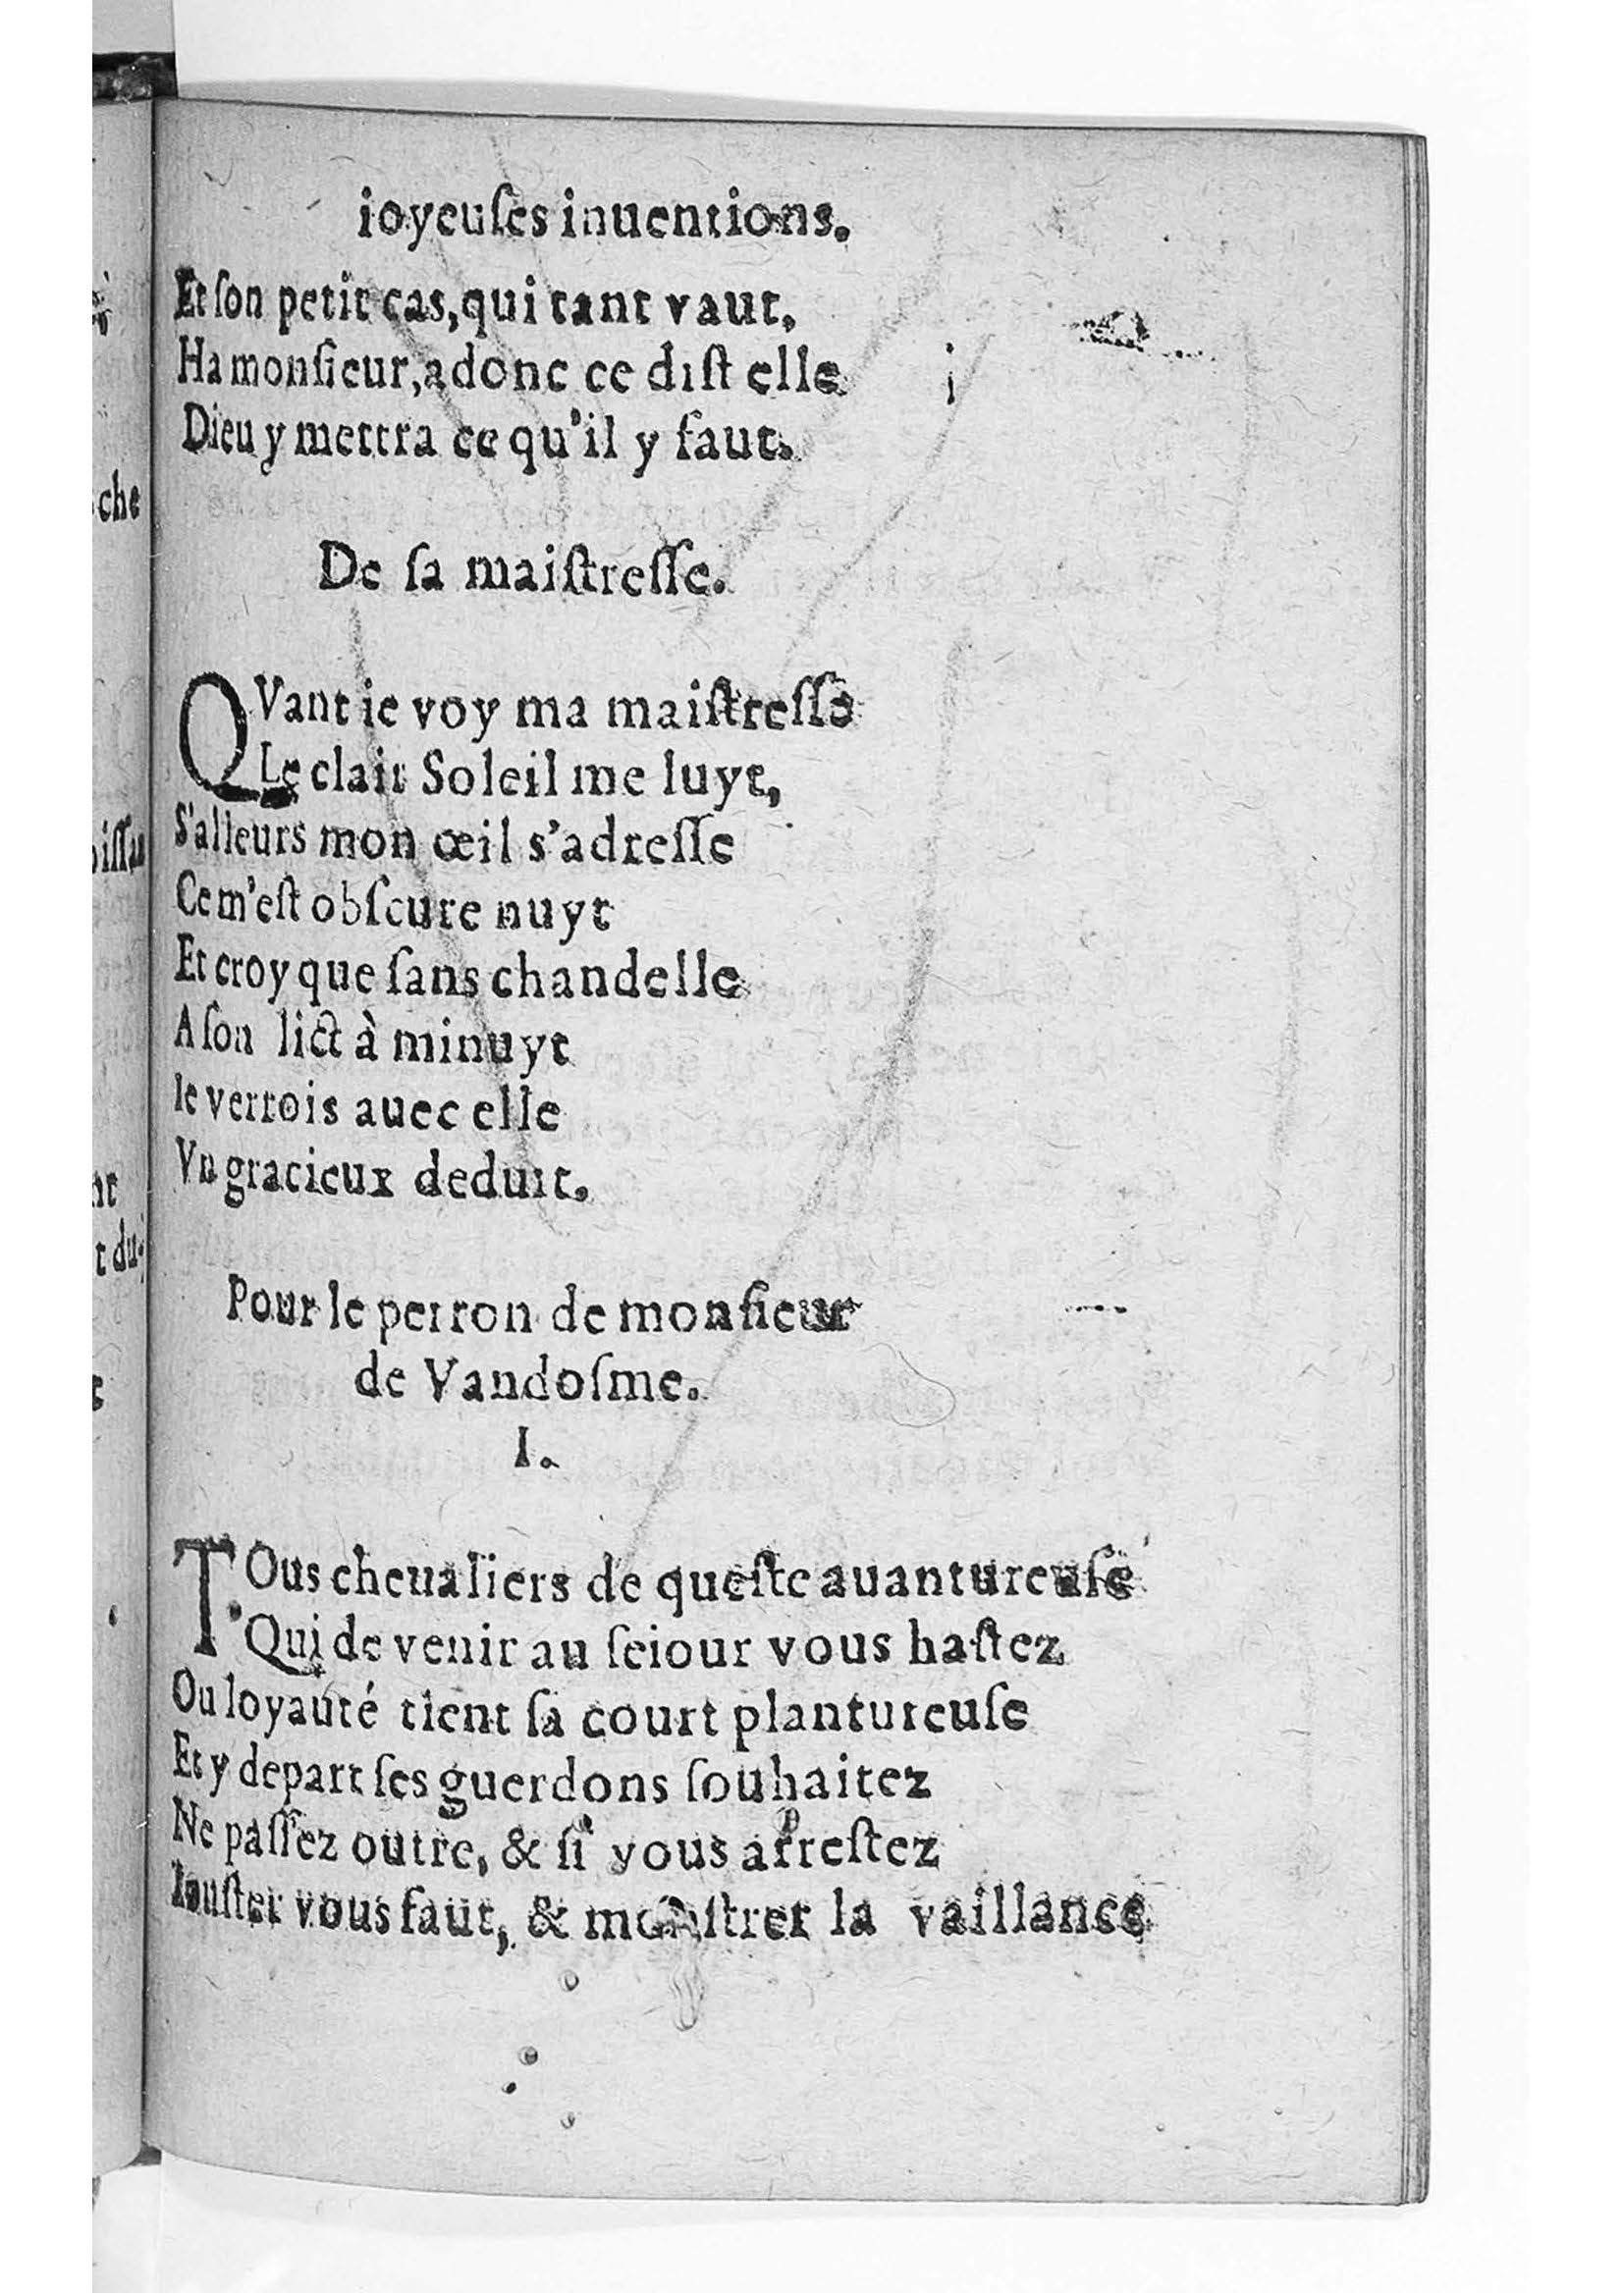 ioyeuſes inuentions.
Et ſon petit cas, qui tant vaut,
Ha monſieur, adonc ce diſt elle
Dieu y mettra ce qu'il y faut.
De ſa maiſtreſſe.
QVant ie voy ma maiſtreſſe
Le clair Soleil me luyt,
S'alleurs mon œil s'adreſſe
Ce m'eſt obſcure nuyt
Et croy que ſans chandelle
A ſon lict à minuyt
Ie verrois auec elle
Vn gracieux deduit.
Pour le perron de monſieur
de Vandoſme.
I.
TOus cheualiers de queſte auantureuſe
Qui de venir au ſeiour vous haſtez
Ou loyauté tient ſa court plantureuſe
Et y depart ſes guerdons ſouhaitez
Ne paſſez outre, & ſi vous arreſtez
Iouſter vous faut, & monſtrer la vaillance
che
t du